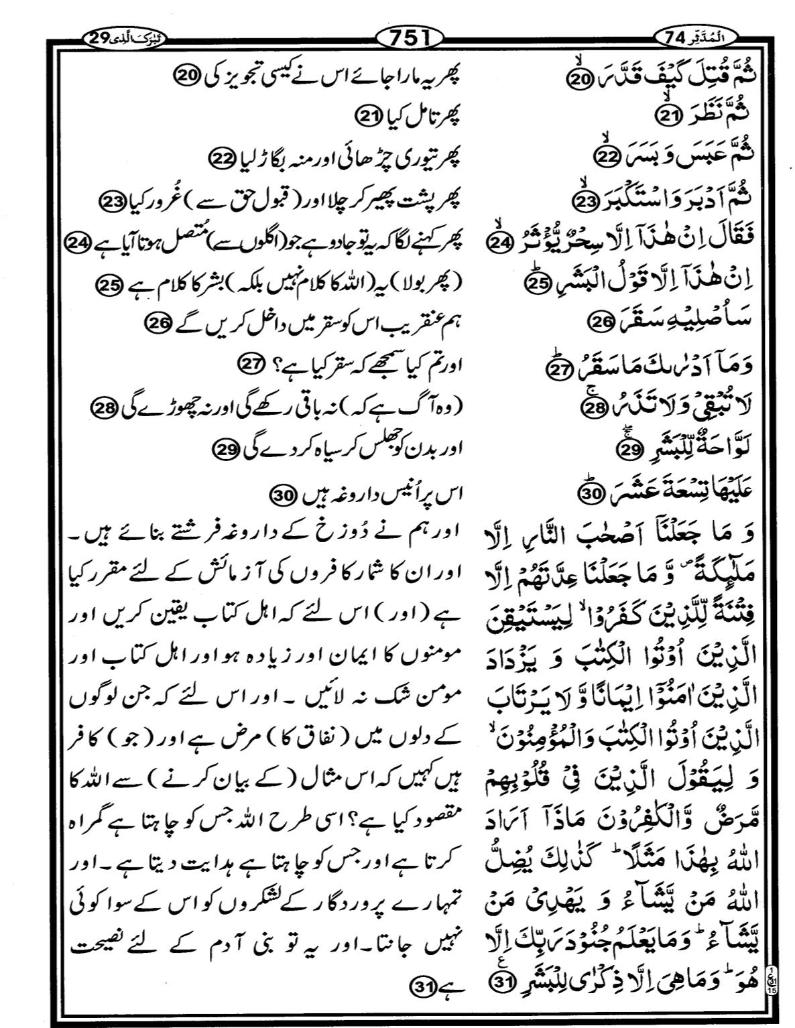 تَبٰرَكَ الَّذِی 29
751
اَلْمُدَّثِّر 74
ثُمَّ قُتِلَ كَیْفَ قَدَّرَ ۙ 20
ثُمَّ نَظَرَ ۙ 21
ثُمَّ عَبَسَ وَ بَسَرَ ۙ 22
ثُمَّ اَدْبَرَ وَاسْتَكْبَرَ ۙ 23
فَقَالَ اِنْ هٰذَاۤ اِلَّا سِحْرٌ یُّؤْثَرُ ۙ 24
اِنْ هٰذَاۤ اِلَّا قَوْلُ الْبَشَرِ ؕ 25
سَاُصْلِیْهِ سَقَرَ 26
وَ مَاۤ اَدْرٰىكَ مَا سَقَرُ ؕ 27
لَا تُبْقِیْ وَ لَا تَذَرُ ۚ 28
لَوَّاحَةٌ لِّلْبَشَرِ ۚ 29
عَلَیْهَا تِسْعَةَ عَشَرَ ؕ 30
وَ مَا جَعَلْنَاۤ اَصْحٰبَ النَّارِ اِلَّا
مَلٰٓىِٕكَةً ۪ وَّ مَا جَعَلْنَا عِدَّتَهُمْ اِلَّا
فِتْنَةً لِّلَّذِیْنَ كَفَرُوْا ۙ لِیَسْتَیْقِنَ
الَّذِیْنَ اُوْتُوا الْكِتٰبَ وَ یَزْدَادَ
الَّذِیْنَ اٰمَنُوْۤا اِیْمَانًا وَّ لَا یَرْتَابَ
الَّذِیْنَ اُوْتُوا الْكِتٰبَ وَالْمُؤْمِنُوْنَ ۙ
وَ لِیَقُوْلَ الَّذِیْنَ فِیْ قُلُوْبِهِمْ
مَّرَضٌ وَّالْكٰفِرُوْنَ مَاذَاۤ اَرَادَ
اللّٰهُ بِهٰذَا مَثَلًا ؕ كَذٰلِكَ یُضِلُّ
اللّٰهُ مَنْ یَّشَآءُ وَ یَهْدِیْ مَنْ
یَّشَآءُ ؕ وَ مَا یَعْلَمُ جُنُوْدَ رَبِّكَ اِلَّا
هُوَ ؕ وَ مَا هِیَ اِلَّا ذِكْرٰى لِلْبَشَرِ 31
پھر یہ مارا جائے اس نے کیسی تجویز کی 20
پھر تامل کیا 21
پھر تیوری چڑھائی اور منہ بگاڑ لیا 22
پھر پشت پھیر کر چلا اور (قبول حق سے) غُرور کیا 23
پھر کہنے لگا کہ یہ تو جادو ہے جو (اگلوں سے) مُتصل ہوتا آیا ہے 24
(پھر بولا) یہ (اللہ کا کلام نہیں بلکہ) بشر کا کلام ہے 25
ہم عنقریب اس کو سقر میں داخل کریں گے 26
اور تم کیا سمجھے کہ سقر کیا ہے؟ 27
(وہ آگ ہے کہ) نہ باقی رکھے گی اور نہ چھوڑے گی 28
اور بدن کو جھلس کر سیاہ کر دے گی 29
اس پر اُنیس داروغہ ہیں 30
اور ہم نے دُوزخ کے داروغہ فرشتے بنائے ہیں۔
اور ان کا شمار کافروں کی آزمائش کے لئے مقرر کیا
ہے (اور) اس لئے کہ اہل کتاب یقین کریں اور
مومنوں کا ایمان اور زیادہ ہو اور اہل کتاب اور
مومن شک نہ لائیں ۔ اور اس لئے کہ جن لوگوں
کے دلوں میں (نفاق کا) مرض ہے اور (جو) کافر
ہیں کہیں کہ اس مثال (کے بیان کرنے) سے اللہ کا
مقصود کیا ہے؟ اسی طرح اللہ جس کو چاہتا ہے گمراہ
کرتا ہے اور جس کو چاہتا ہے ہدایت دیتا ہے۔ اور
تمہارے پروردگار کے لشکروں کو اس کے سوا کوئی
نہیں جانتا۔ اور یہ تو بنی آدم کے لئے نصیحت
ہے 31